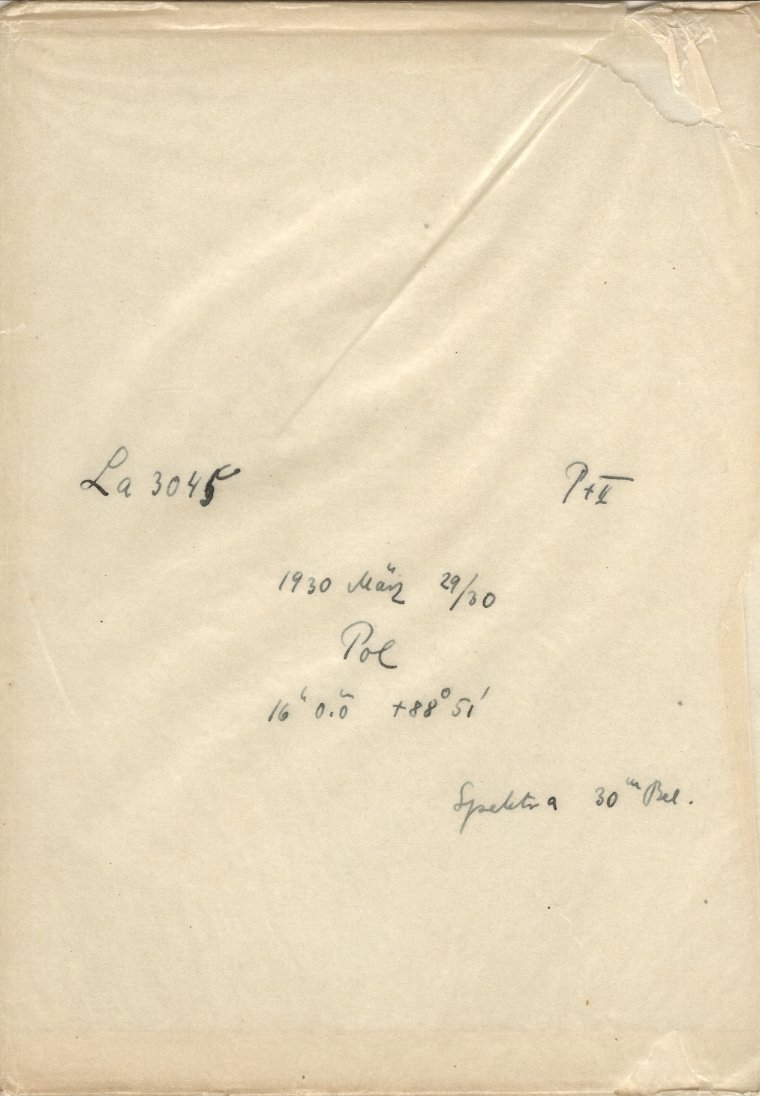 La 3045 P+II
1930 März 29/30
Pol
16ʰ 0.ᵐ0 +88° 51′
Spektra 30ᵐ Bel.